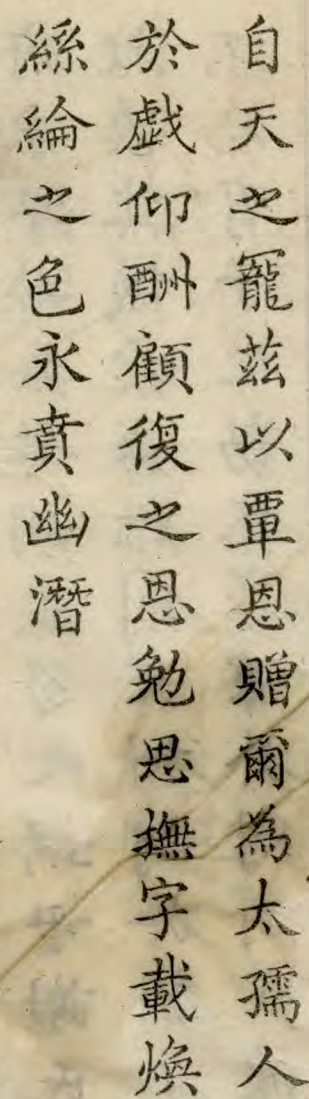 自天之寵茲以覃恩贈爾為太孺人
於戲仰酬顧復之恩勉思撫字載煥
絲綸之色永賁幽潛